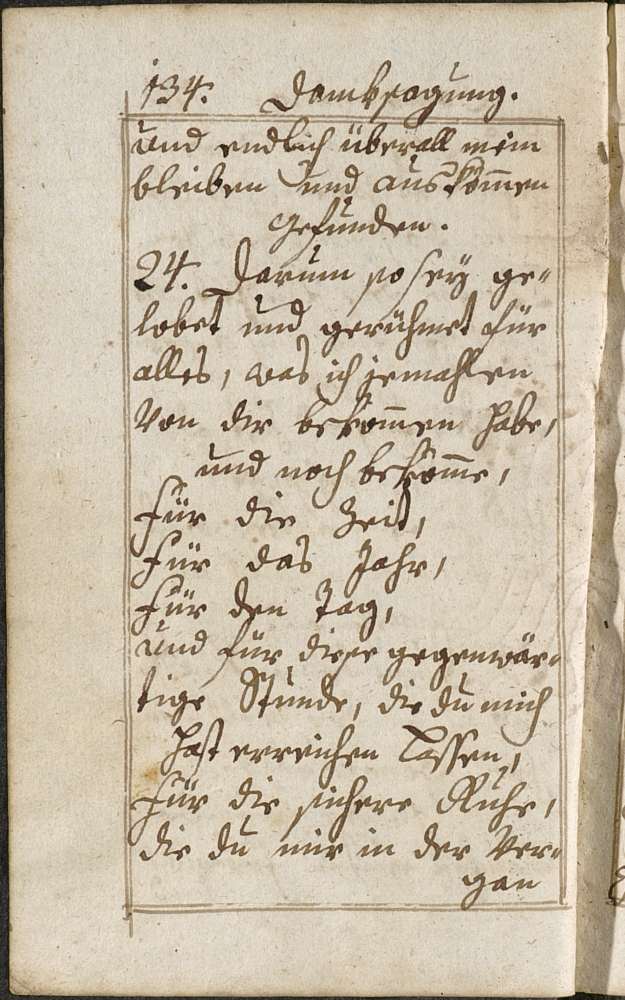 134. Danksagung.
und endlich überall mein
bleiben und auskom̄en
gefunden.
24. Darum so sey ge„
lobet und gerühmet für
alles, was ich jemahlen
von dir bekom̄en habe,
und noch bekom̄e,
für die Zeit,
für das Jahr,
für den Tag,
und für diese gegenwär„
tige Stunde, die du mich
hast erreichen lassen,
für die sichere Ruhe,
die du mir in der Ver„
gan